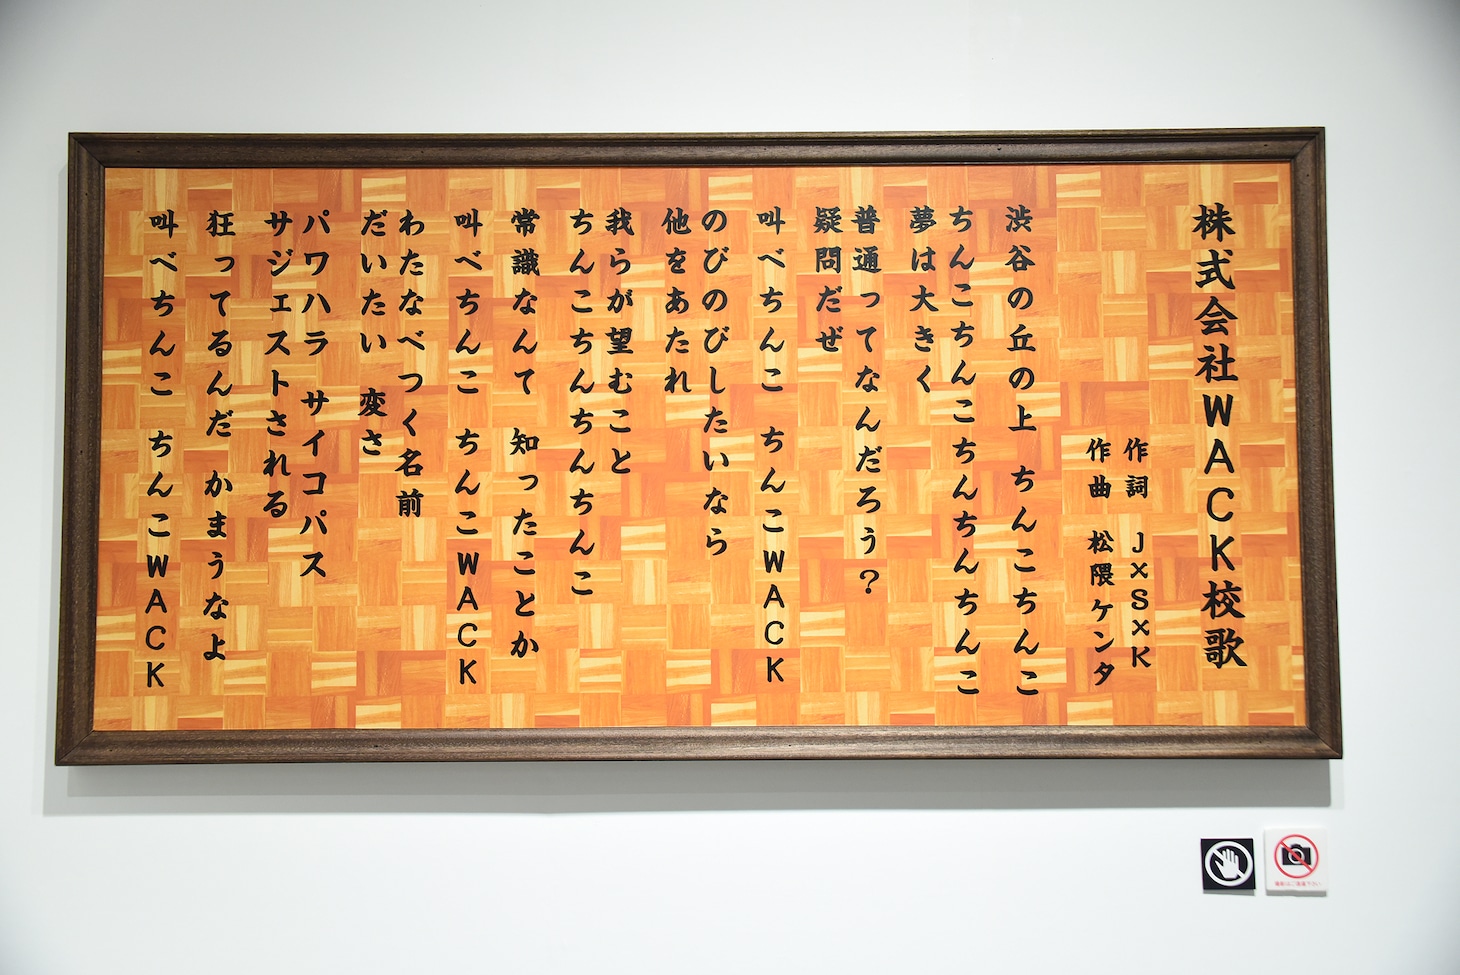 株式会社WACK校歌
作詞 J×S×K
作曲 松隈ケンタ
渋谷の丘の上 ちんこちんこ
ちんこちんこちんちんちんこ
夢は大きく
普通ってなんだろう？
疑問だぜ
叫べちんこ ちんこWACK
のびのびしたいなら
他をあたれ
我らが望むこと
ちんこちんちんちんこ
常識なんて 知ったことか
叫べちんこ ちんこWACK
わたなべつく名前
だいたい 変さ
パワハラ サイコパス
サジェストされる
狂ってるんだ かまうなよ
叫べちんこ ちんこWACK
撮影はご遠慮下さい